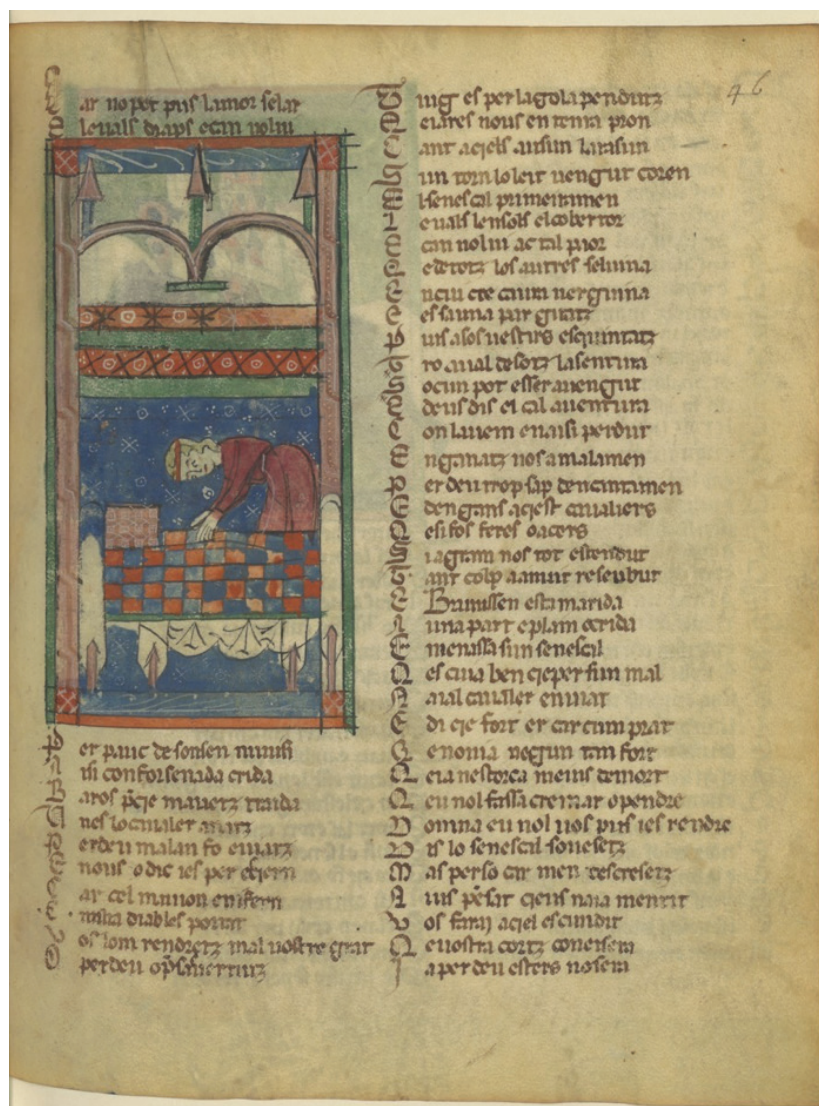 ar no pot pus lamor selar
leuals draps ecan nolui
er pauc de son sen nuisi
si con forsenada crida
aros pqe mauetz traida
nes lo caualer anatz
er deu malan fo eniatz
nous o dic ies per esqern
ar cel minon en ifern
diables portat
os lom rendretz mal uostre grat
per deu
46
uig es per la gola pendutz
enares nous en tenra pron
ant aqels ausun la rasun
un torn lo leit uengut coren
l senescal primeiramen
e uals lensols el cobertor
can nol ui ac tal paor
e de totz los autres
es sauia par gitatz
uis a sos uestirs esquintatz
ro aual desotz la sentura
o cum pot esser auengut
deus dis el cal auentura
on lauem enaisi perdut
nganatz nos a malamen
er deu trop sap dencantamen
dengans aqest caualiers
e si fos feres o acers
iagram nos tot estendut
ant colp a auut reseubut
Brunissen esta marida
una part e plain e crida
menassa sun senescal
es cuia ben qe per sun mal
aial caualer enuiat
di qe fort er car cumprat
enoma negun tan fort
eia nestorca meins de mort
eu nol fassa cremar o pendre
omna eu nol uos pus ies rendre
is lo senescal so uesetz
as per so car men descresetz
uis pesat qeus naia mentit
os farai aqel escundit
e uostra cortz coneisera
a per deu esters no sera